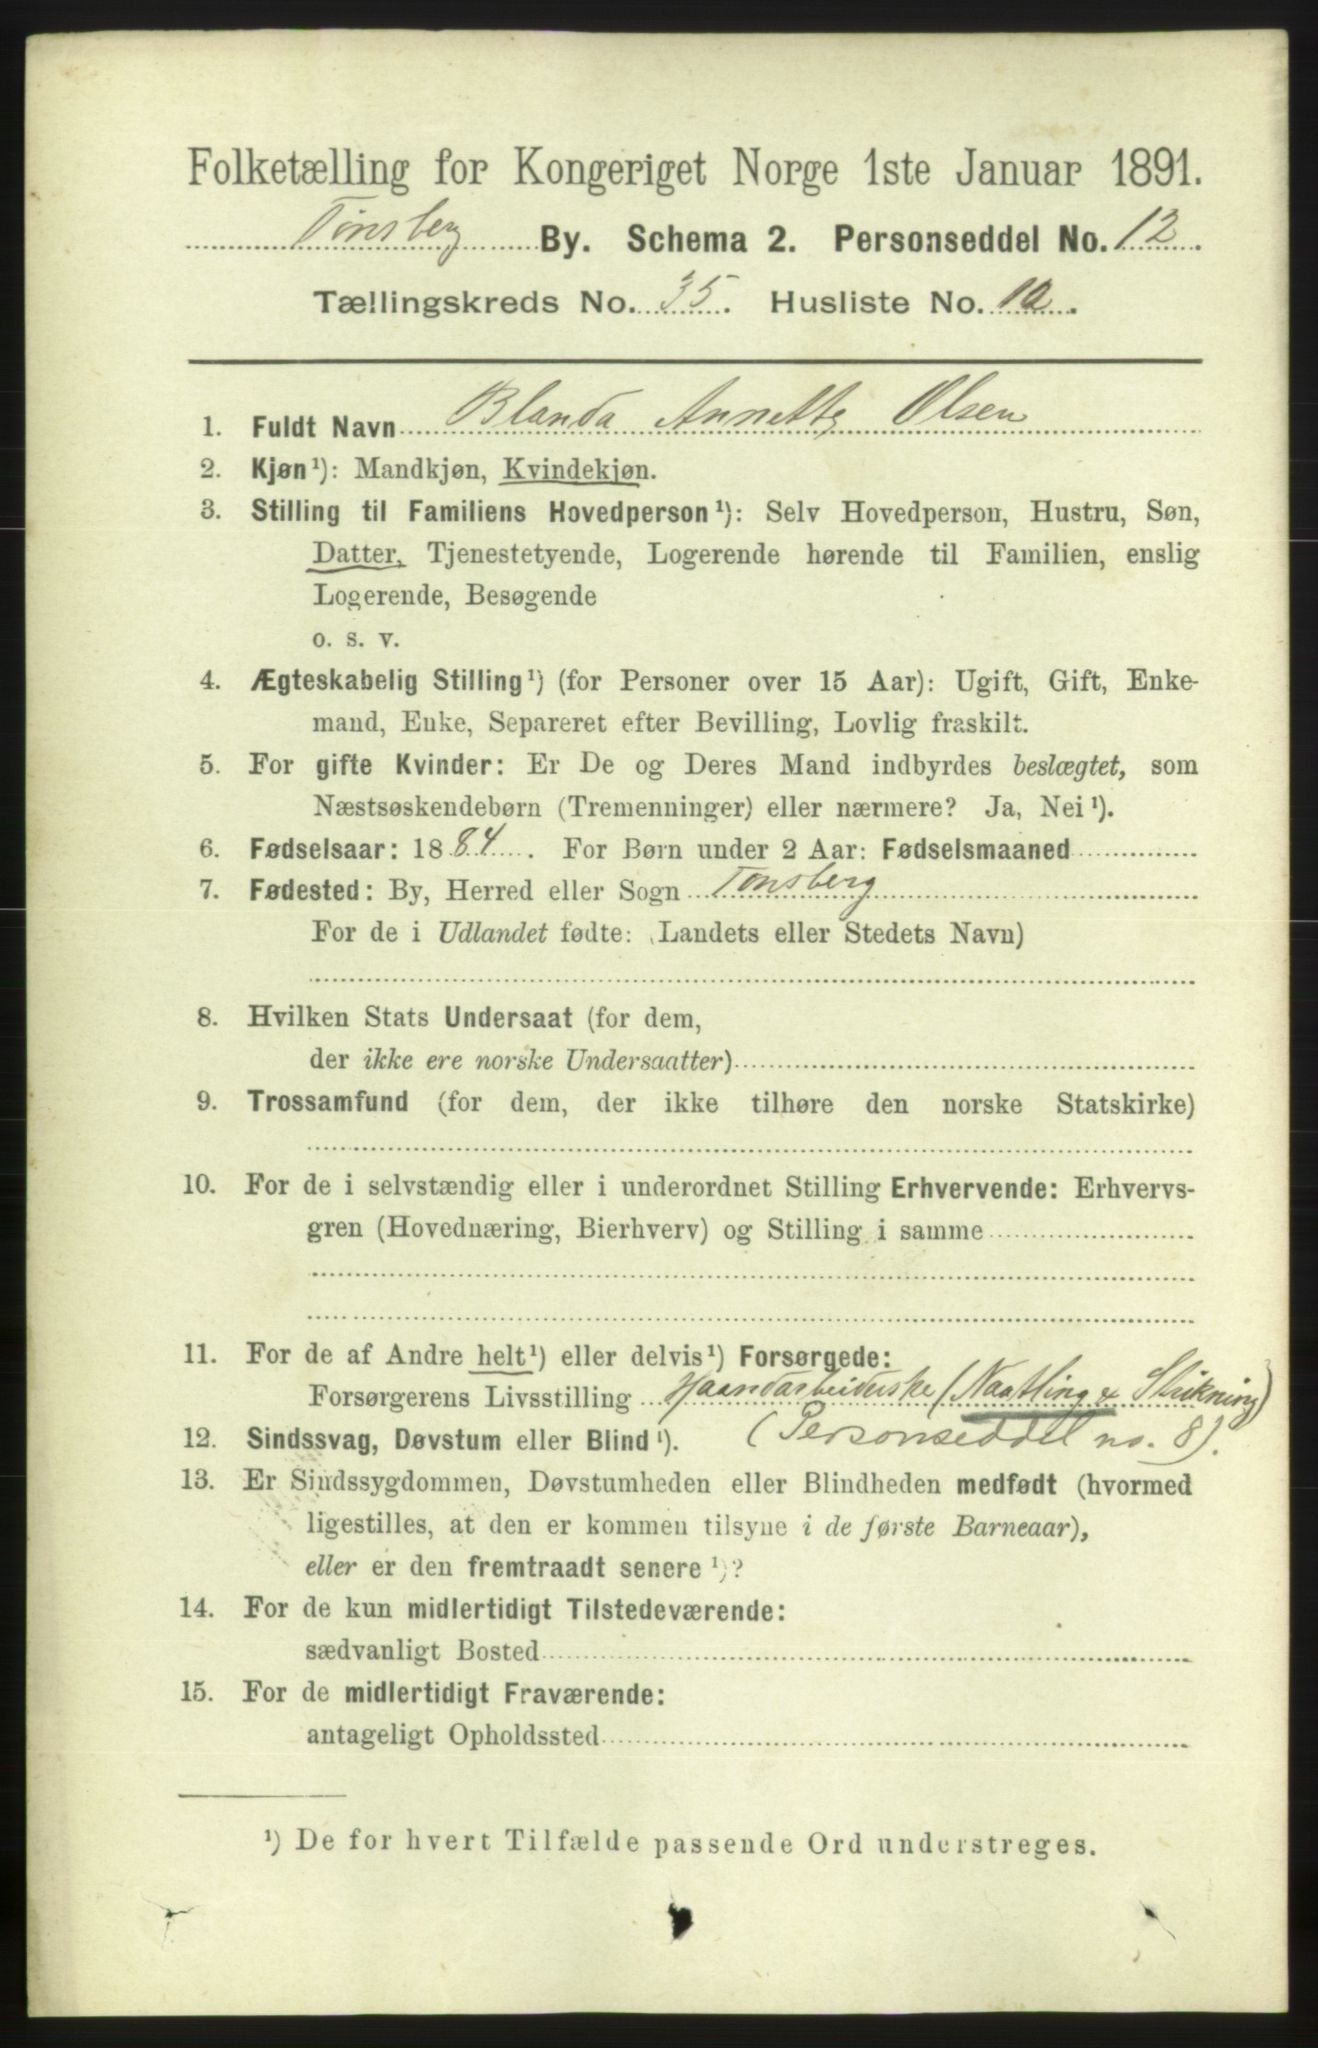 Folketælling for Kongeriget Norge 1ste Januar 1891.
Tønsberg By. Schema 2. Personseddel No. 12.
Tællingskreds No. 35. Husliste No. 10.
1. Fuldt Navn Blanda Annette Olsen
2. Kjøn¹): Mandkjøn, Kvindekjøn.
3. Stilling til Familiens Hovedperson¹): Selv Hovedperson, Hustru, Søn,
Datter, Tjenestetyende, Logerende hørende til Familien, enslig
Logerende, Besøgende
o. s. v.
4. Ægteskabelig Stilling¹) (for Personer over 15 Aar): Ugift, Gift, Enke-
mand, Enke, Separeret efter Bevilling, Lovlig fraskilt.
5. For gifte Kvinder: Er De og Deres Mand indbyrdes beslægtet, som
Næstsøskendebørn (Tremenninger) eller nærmere? Ja, Nei¹).
6. Fødselsaar: 1884. For Børn under 2 Aar: Fødselsmaaned
7. Fødested: By, Herred eller Sogn Tønsberg
For de i Udlandet fødte: (Landets eller Stedets Navn)
8. Hvilken Stats Undersaat (for dem,
der ikke ere norske Undersaatter)
9. Trossamfund (for dem, der ikke tilhøre den norske Statskirke)
10. For de i selvstændig eller i underordnet Stilling Erhvervende: Erhvervs-
gren (Hovednæring, Bierhverv) og Stilling i samme
11. For de af Andre helt¹) eller delvis¹) Forsørgede:
Forsørgerens Livsstilling Haandarbeiderske (Naatling & Strikning)
12. Sindssvag, Døvstum eller Blind¹). (Personseddel no. 8).
13. Er Sindssygdommen, Døvstumheden eller Blindheden medfødt (hvormed
ligestilles, at den er kommen tilsyne i de første Barneaar),
eller er den fremtraadt senere¹)?
14. For de kun midlertidigt Tilstedeværende:
sædvanligt Bosted
15. For de midlertidigt Fraværende:
antageligt Opholdssted
¹) De for hvert Tilfælde passende Ord understreges.